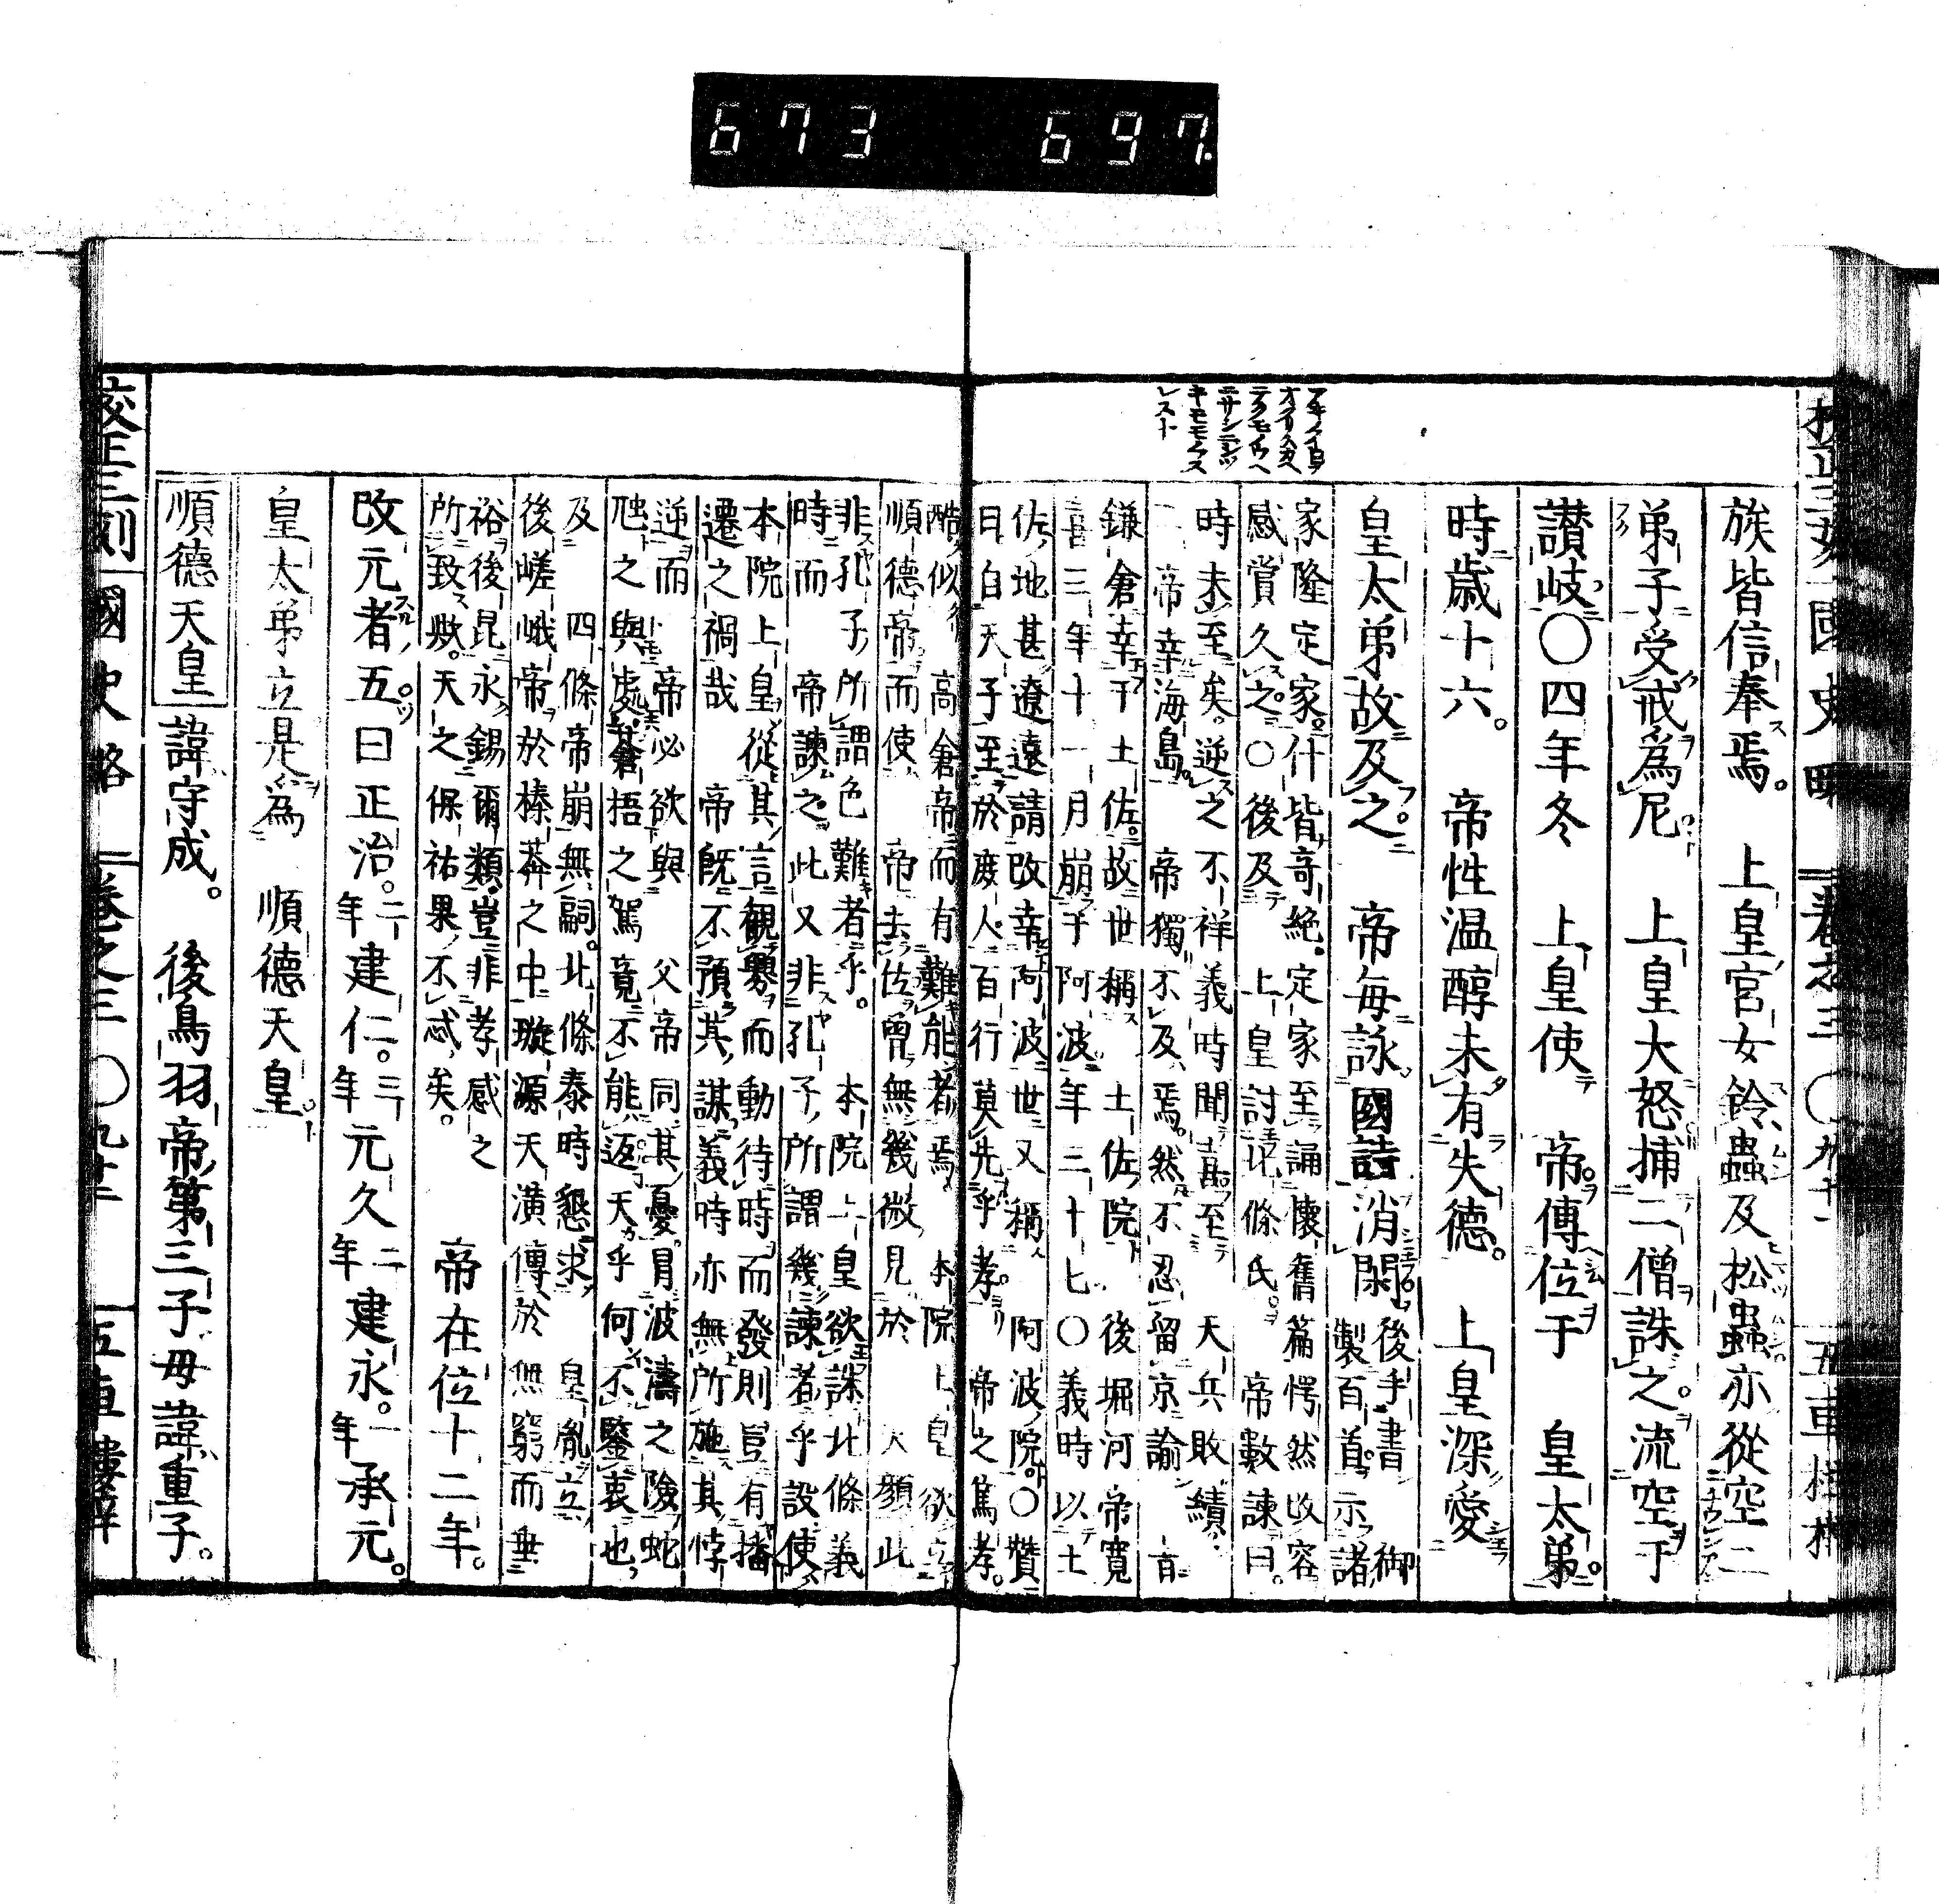 673 697.
校正三刻國史略 卷之三 〇九十一 五車樓梓
族皆信奉焉。上皇宮女鈴蟲及松蟲亦從空二
弟子受戒爲尼 上皇大怒捕二僧誅之。流空于
讃岐〇四年冬 上皇使 帝傳位于 皇太弟。
時歲十六。 帝性温醇未有失德。 上皇深愛
皇太弟故及之 帝每詠國詩消閑 後手書 御
製百首示諸
家隆定家。什皆奇絶。定家至誦懷舊篇愕然改容
感賞久之〇後及 上皇討北條氏。 帝數諫曰。
時未至矣。逆之不祥義時聞甚至 天兵敗績。
二 帝幸海島。 帝獨不及焉。然不忍留京諭 言
鎌倉幸于土佐。故世稱 土佐院 後堀河帝寬
喜三年十一月崩于阿波年三十七〇義時以土
佐地甚遼遠請改幸阿波世又稱 阿波院〇贊
曰自天子至於庶人百行莫先乎孝。 帝之篤孝。
酷似 高倉帝而有難能者焉。 本院上皇欲立
順德帝而使 帝去佐曾無幾微見於 天顏此
非孔子所謂色難者乎。 本院上皇欲誅北條義
時而 帝諫之此又非孔子所謂幾諫者乎設使
本院上皇從其言觀釁而動待時而發則豈有播
遷之禍哉 帝旣不預其謀義時亦無所施其悖
逆而 帝必欲與 父帝同其憂冒波濤之險蛇
虺之與處蒼梧之駕竟不能返天乎何不鑒衷也
及 四條帝崩無嗣。北條泰時懇求 皇胤立
後嵯峨帝於榛莽之中璇源天潢傳於無窮而垂
裕後昆永錫爾類豈非孝感之
所致歟。天之保祐果不忒矣。 帝在位十二年。
改元者五曰正治。二年建仁。三年元久二年建永。一年承元。
皇太弟立是爲 順德天皇。
順德天皇 諱守成。 後鳥羽帝第三子母諱重子。
校正三刻國史略 卷之三 〇九十二 五車樓梓